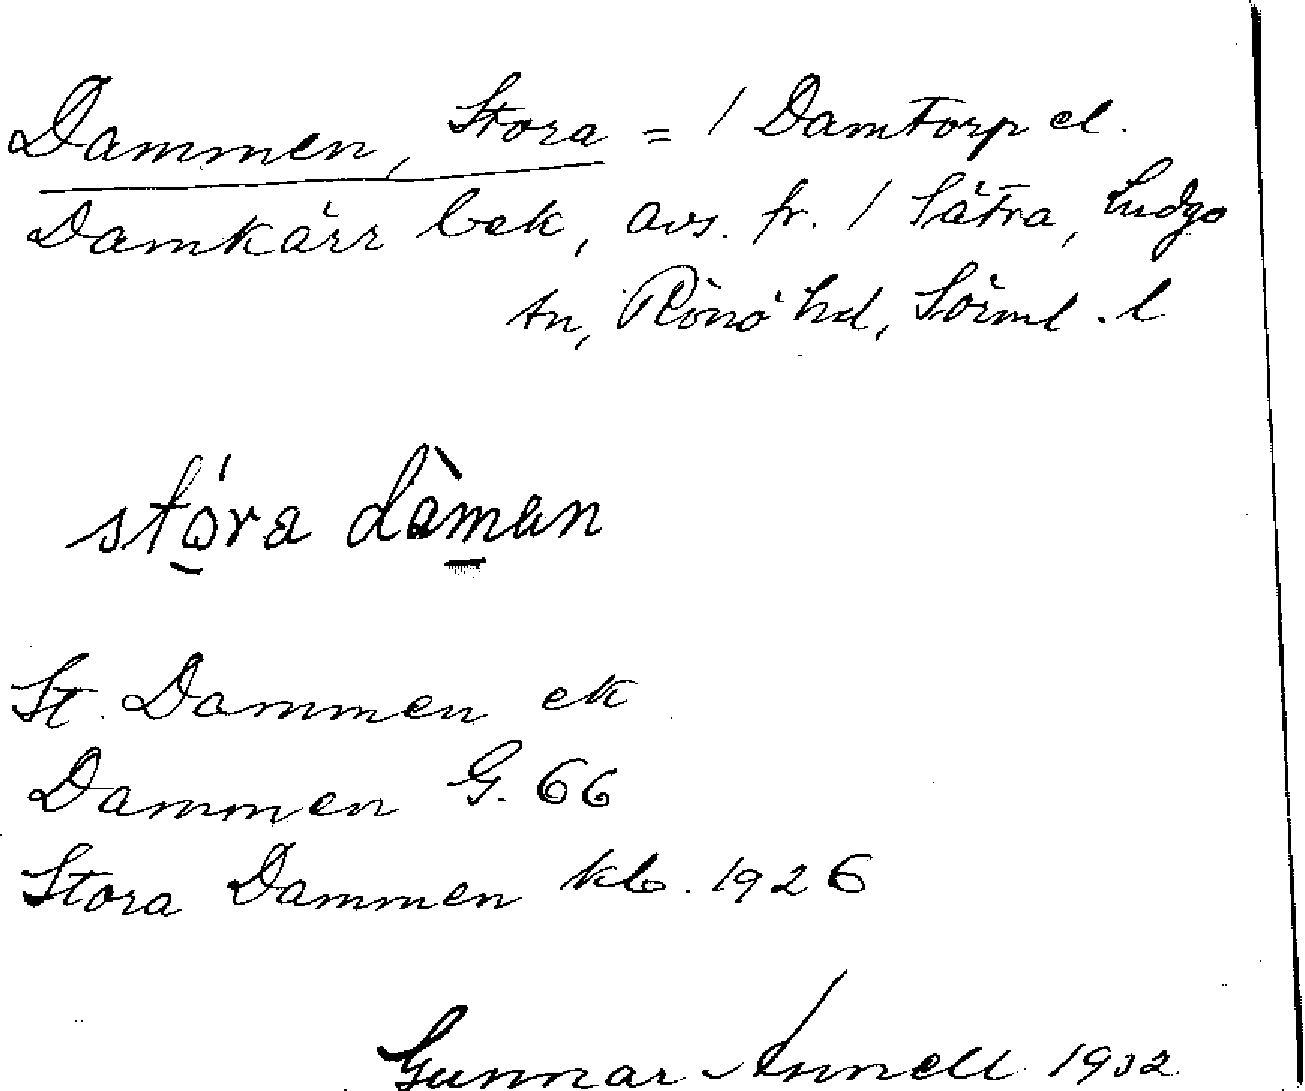 Dammen, Stora = 1 Damtorp el.
Damkärr bek, avs. fr. 1 Sätra, Ludgo
sn, Rönö hd, Sörml. l
stóra dàman
St. Dammen ek
Dammen G. 66
Stora Dammen kb. 1926
Gunnar Annell 1932